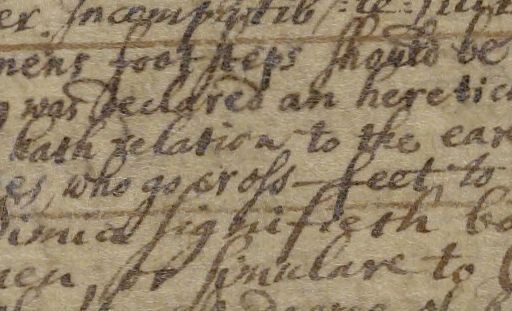 er. Incompatib
mens footsteps should be
was declared an heretic
hath relation to the ear
es, who go cross-feet, to
imia signifieth bo
nen, or simulare to